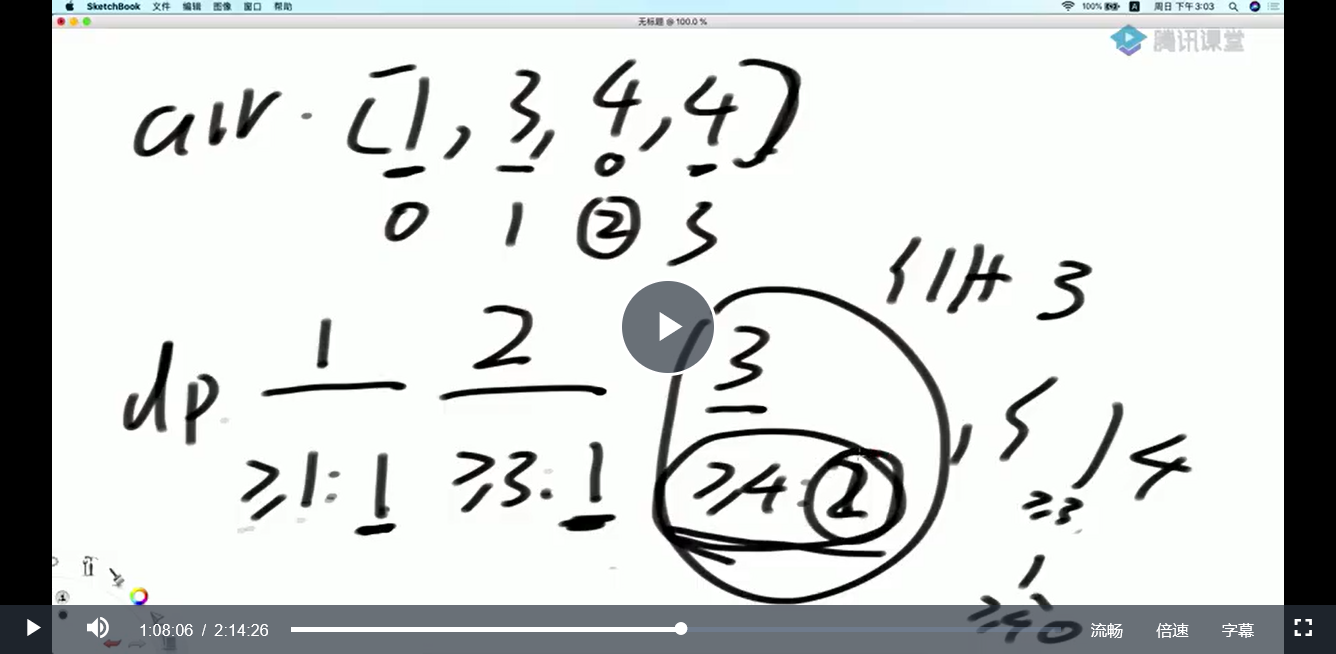 SketchBook 文件 编辑 图像 窗口 帮助 100% A 周日 下午3:03
无标题 @ 100.0 %
腾讯课堂
arr. [1, 3, 4, 4]
0 1 2 3
3
dp 1 2 3
≥1: 1 ≥3: 1 ≥4: 2 , 4
≥3
1
≥4 0
1:08:06 / 2:14:26 流畅 倍速 字幕